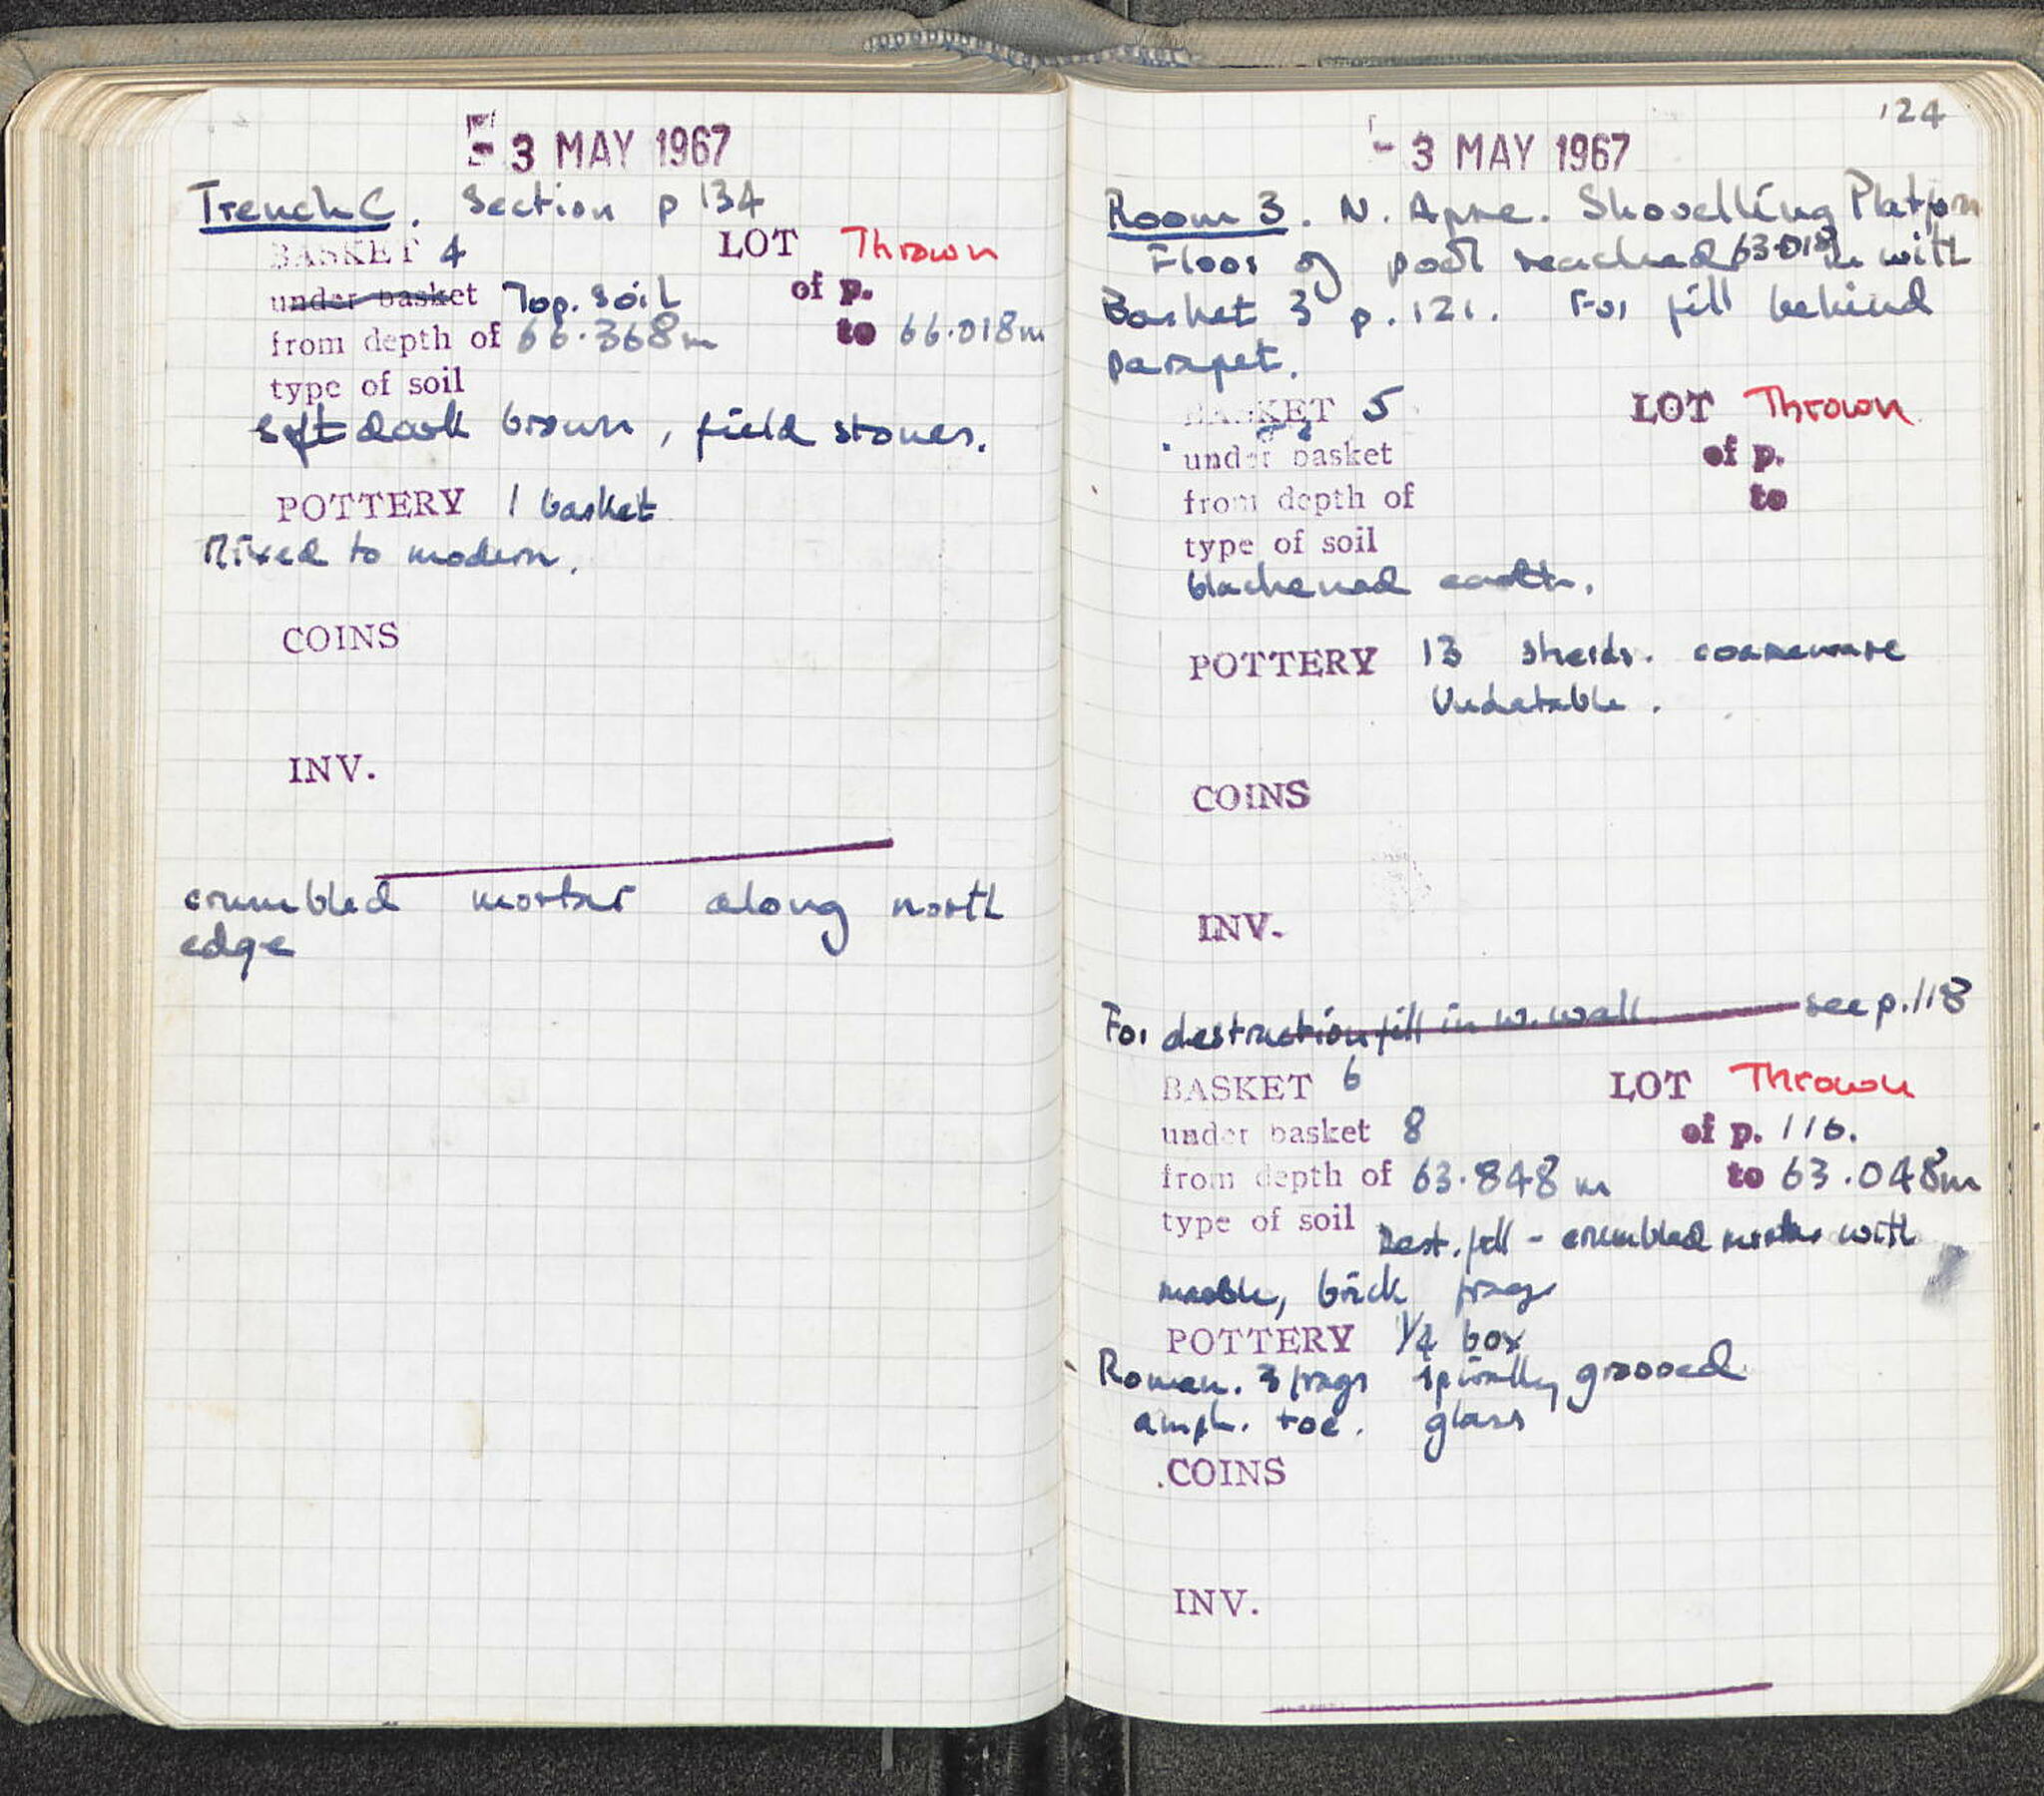 - 3 MAY 1967
Trench C. Section p 134
BASKET 4 LOT Thrown
under basket Top. Soil of p.
from depth of 66.368m to 66.018m
type of soil
soft dark brown, field stones.
POTTERY 1 basket
Mixed to modern.
COINS
INV.
crumbled mortar along north
edge
124
- 3 MAY 1967
Room 3. N. Apse. Shovelling Platform
Floor of pool reached 63.018m with
Basket 3 p. 121. For fill behind
parapet.
BASKET 5 LOT Thrown
under basket of p.
from depth of to
type of soil
blackened earth.
POTTERY 13 sherds. coarseware
Undatable.
COINS
INV.
For destruction fill in w. wall see p. 118
BASKET 6 LOT Thrown
under basket 8 of p. 116.
from depth of 63.848 m to 63.048m
type of soil Dest. fill - crumbled mortar with
marble, brick frags
POTTERY 1/4 box
Roman. 3 frags spirally grooved
amph. toe. glass
COINS
INV.